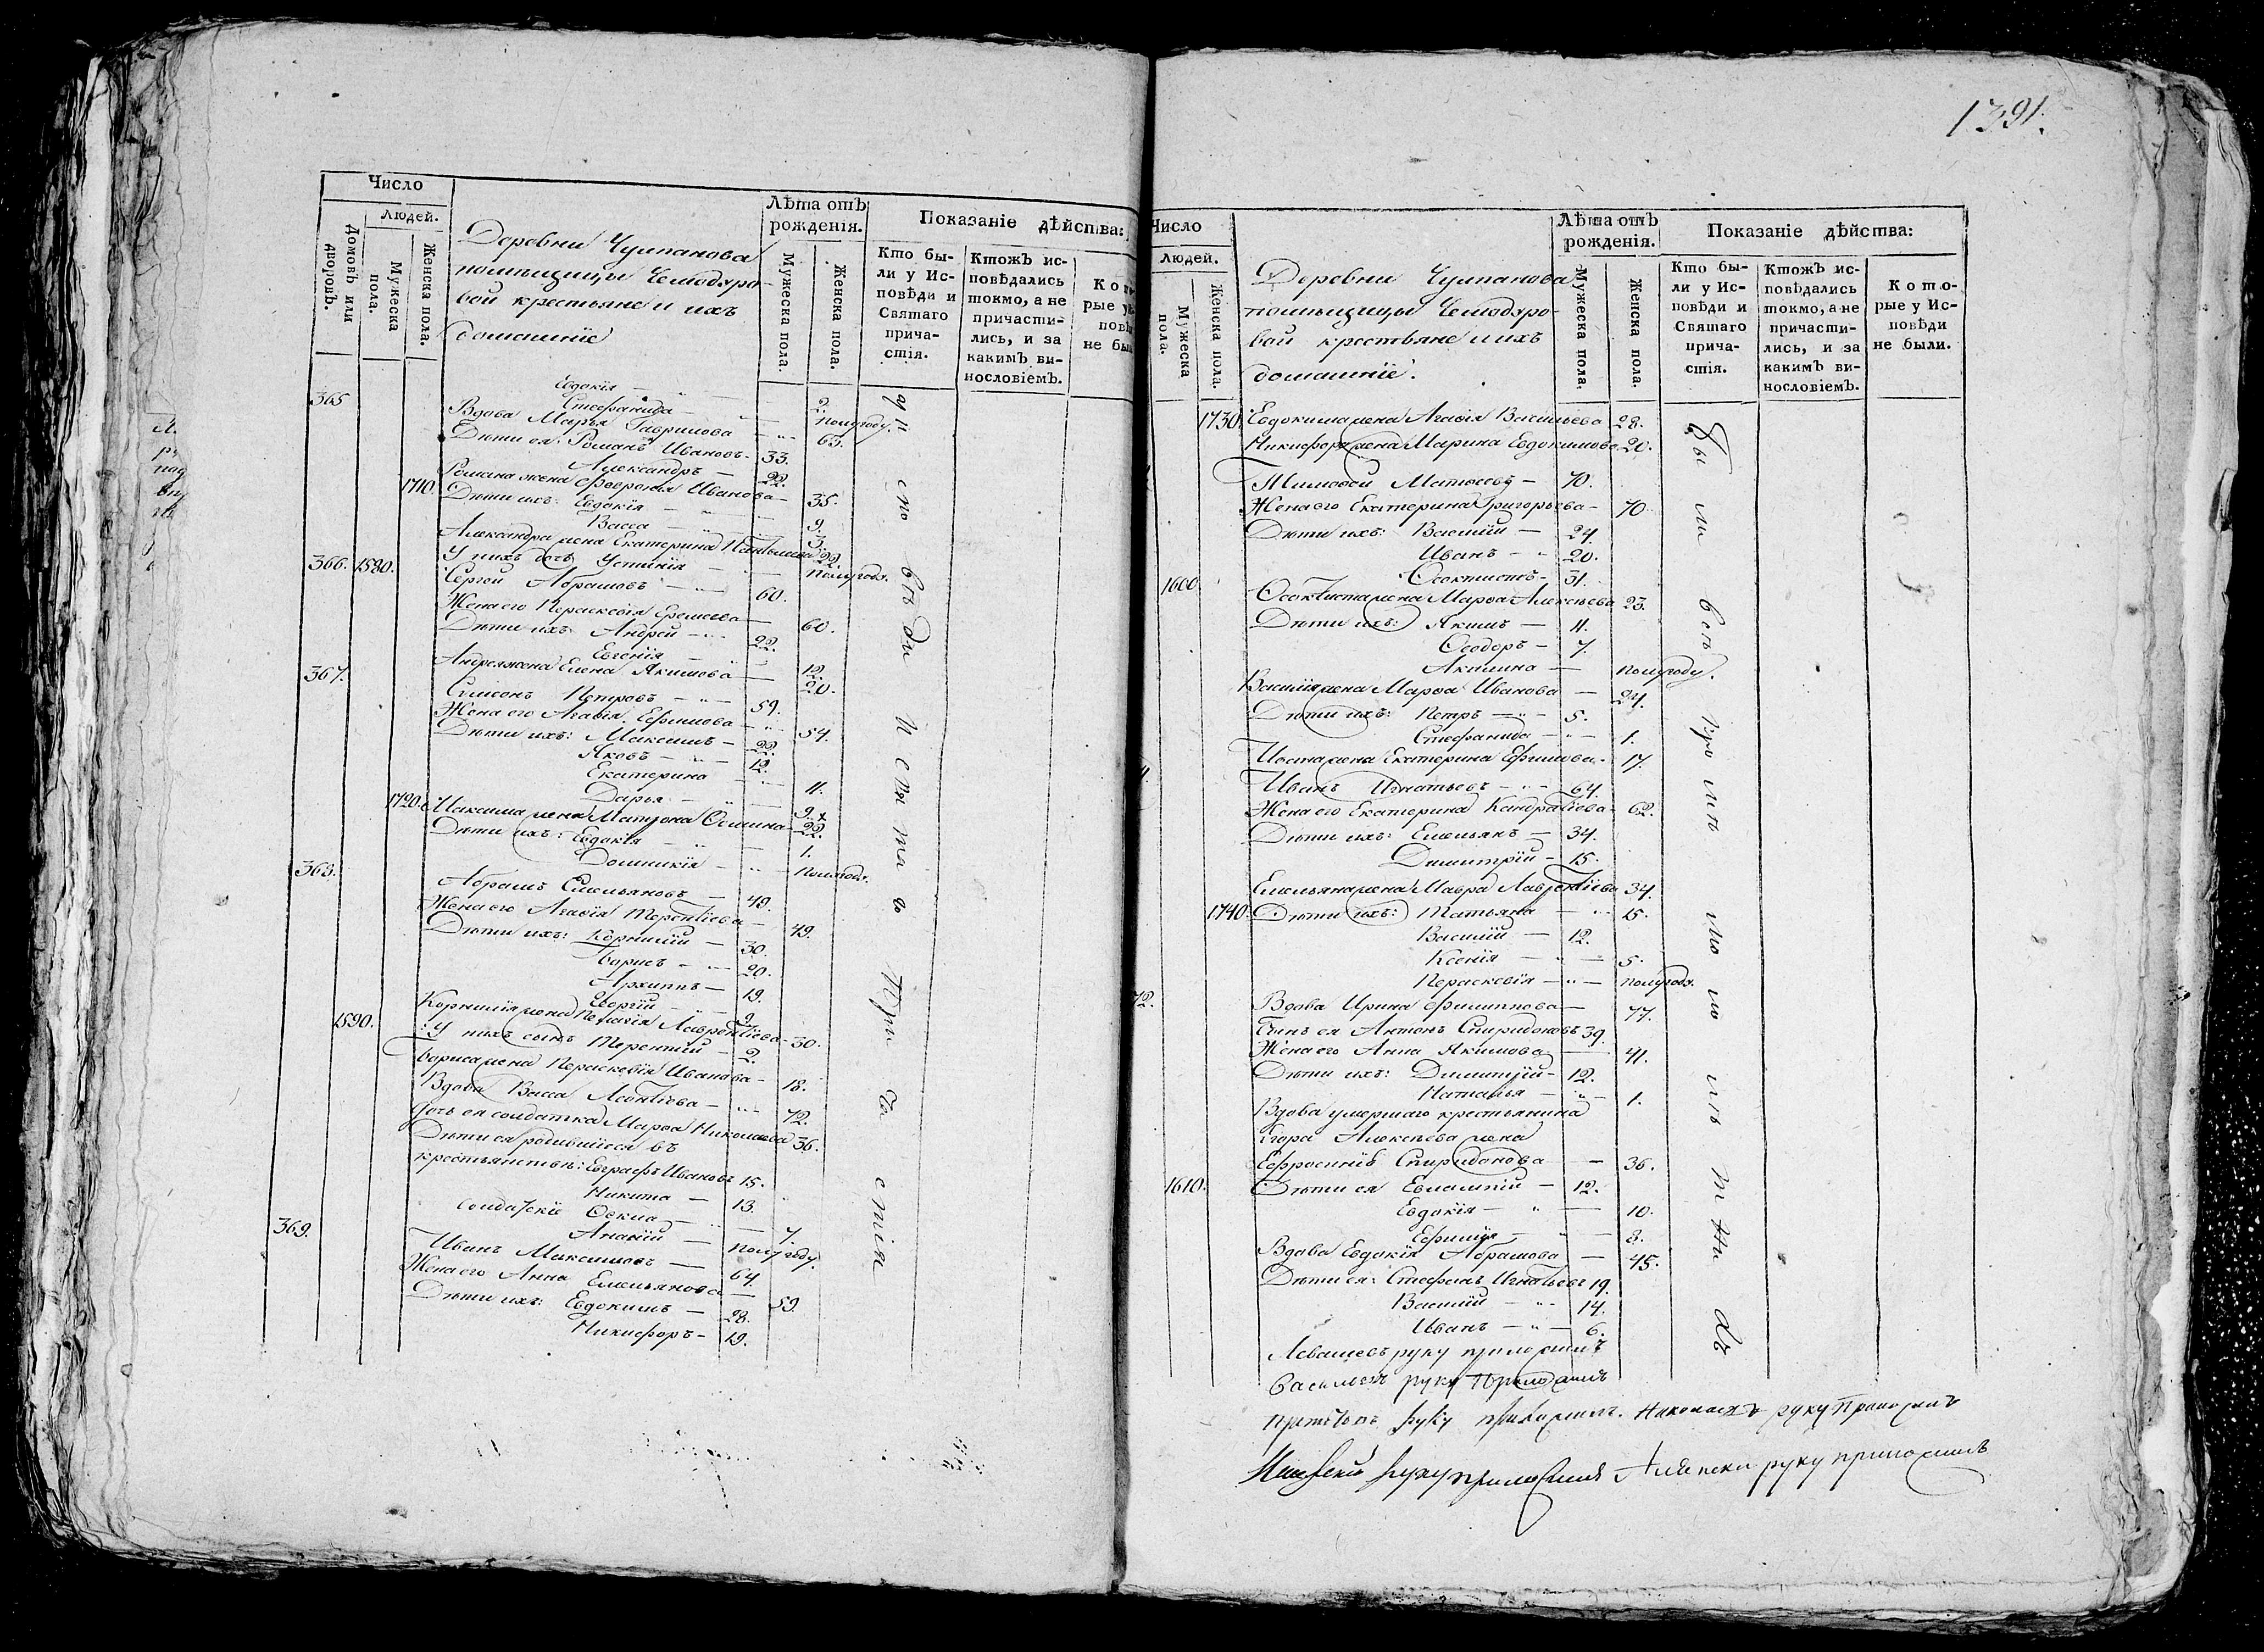 1391.
Число
Людей.
Домовъ или дворовъ.
Мужеска пола.
Женска пола.
Деревни Чулпанова
помѣщицы Чемодуро-
вой крестьяне и ихъ
домашніе
Лѣта отъ рожденія.
Мужеска пола.
Женска пола.
Показаніе дѣйства:
Кто бы-
ли у Ис-
повѣди и
Святаго
прича-
стія.
Ктожъ ис-
повѣдались
токмо, а не
причасти-
лись, и за
какимъ ви-
нословіемъ.
Евдокія — 2.
Стефанида — полугоду.
365 Вдова Марья Гаврилова — 63.
Дѣти ея: Романъ Ивановъ - 33.
Александръ — 22.
Романа жена Февронія Иванова — 35.
1710. Дѣти ихъ: Евдокія — 9.
Васса — 3.
Александра жена Екатерина 22.
У нихъ дочь Устинія — полугода.
366. 1580. Сергей Абрамовъ — 60.
Жена его Параскевія — 60.
Дѣти ихъ: Андрей — 22.
Евгенія — 12.
Андрея жена Елена Якимова — 20.
367. Симеонъ Петровъ — 59.
Жена его Агафія Ефимова — 54.
Дѣти ихъ: Максимъ — 22.
Яковъ — 12.
Екатерина — 11.
Дарья — 9.
1720. Максима жена Матрона 22.
Дѣти ихъ: Евдокія — 1.
Домникія — полугода.
368. Абрамъ Емельяновъ — 49.
Жена его Агафія Терентіева — 49.
Дѣти ихъ: Корнилій — 30.
Борисъ — 20.
Архиппъ — 19.
Георгій — 9.
Корнилія жена Пелагія Лаврентіева - 30.
1590. У нихъ сынъ Терентій — 2.
Бориса жена Параскевія Иванова - 18.
Вдова Васса Леонтіева — 72.
Дочь ея солдатка Марѳа Николаева 36.
Дѣти ея родившіеся въ
крестьянствѣ: Евграфъ Ивановъ 15.
Никита — 13.
солдатскіе Ѳекла — 7.
Ананій — полугоду.
369. Иванъ Максимовъ — 64.
Жена его Анна Емельянова — 59.
Дѣти ихъ: Евдокимъ — 28.
Никифоръ - 19.
исповѣди и Святаго Причастія
Число
Людей.
Мужеска пола.
Женска пола.
Деревни Чулпанова
помѣщицы Чемодуро-
вой крестьяне и ихъ
домашніе.
Лѣта отъ рожденія.
Мужеска пола.
Женска пола.
Показаніе дѣйства:
Кто бы-
ли у Ис-
повѣди и
Святаго
прича-
стія.
Ктожъ ис-
повѣдались
токмо, а не
причасти-
лись, и за
какимъ ви-
нословіемъ.
Кото-
рые у Ис-
повѣди
не были.
1730. Евдокима жена Агафія Васильева - 28.
Никифора жена Марина Евдокимова 20.
Тимофей Матвеевъ — 70.
Жена его Екатерина Григорьева - 70.
Дѣти ихъ: Василій — 24.
Иванъ — 20.
1600. Ѳеоктистъ - 31.
Ѳеоктиста жена Марѳа Алексѣева 23.
Дѣти ихъ: Якимъ — 11.
Ѳеодоръ — 7.
Акилина — полугоду.
Василія жена Марѳа Иванова — 24.
Дѣти ихъ: Петръ — 5.
Стефанида — 1.
Ивана жена Екатерина Ефимова - 17.
Иванъ Игнатьевъ — 64.
Жена его Екатерина Кандратіева - 62.
Дѣти ихъ: Емельянъ — 34.
Димитрій - 15.
Емельяна жена Мавра Лаврентіева 34.
1740. Дѣти ихъ: Татьяна — 15.
Василій — 12.
Ксенія — 5.
Параскевія — полугода.
72. Вдова Ирина Филиппова — 77.
Сынъ ея Антонъ Спиридоновъ 39.
Жена его Анна Якимова — 41.
Дѣти ихъ: Димитрій - 12.
Наталья — 1.
Вдова умершаго крестьянина
Егора Алексѣева жена
Ефросинія Спиридонова — 36.
1610. Дѣти ея Евлампій — 12.
Евдокія — 10.
Ефимія — 8.
Вдова Евдокія Абрамова — 45.
Дѣти ея: Стефанъ Игнатьевъ 19.
Василій — 14.
Иванъ — 6.
руку приложилъ
Васильевъ руку приложилъ
руку приложилъ. Николаевъ руку приложилъ
руку приложилъ руку приложилъ